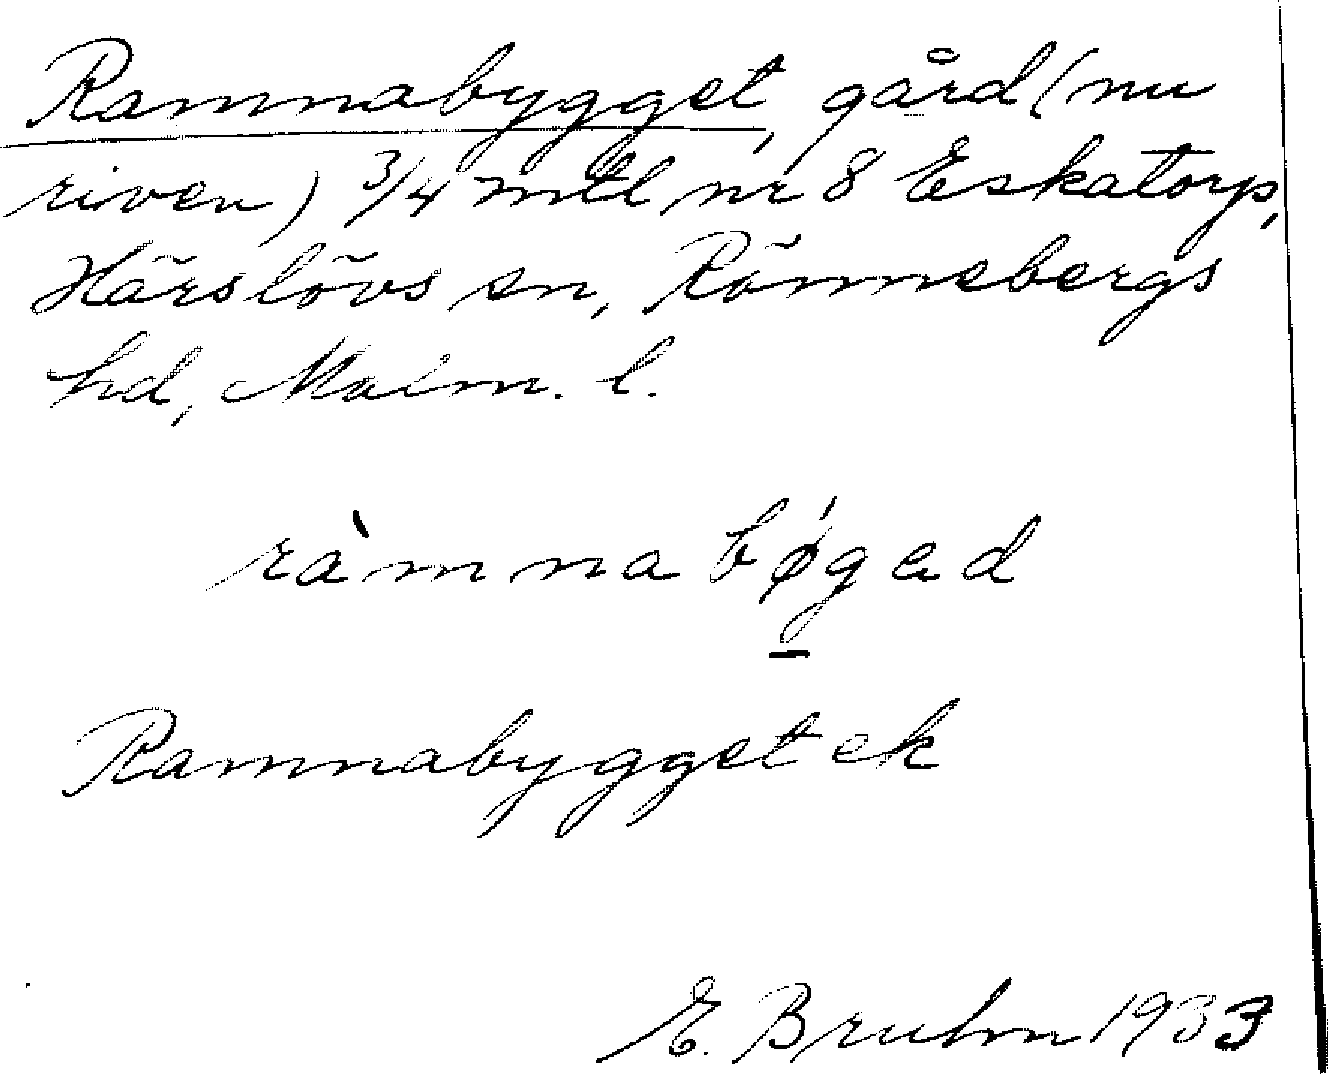 Ramnabygget, gård (nu
riven) 3/4 mtl nr 8 Eskatorp,
Härslövs sn, Rönnebergs
hd, Malm. l.
ràmnabǿgad
Ramnabygget ek
E. Bruhn 1933